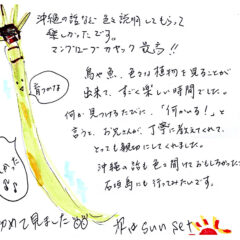 沖縄の話など色々説明してもらって
楽しかったです。
マングローブカヤック最高!!
育つかな
鳥や魚、色々な植物を見ることが
出来て、すごく楽しい時間でした。
何か見つけるたびに、「何かいる!」と
言うと、お兄さんが、丁寧に教えてくれて、
とっても親切にしてくれました。
沖縄の話も色々聞けておもしろかった
石垣島にも行ってみたいです。
かった
めて見ました
sun set